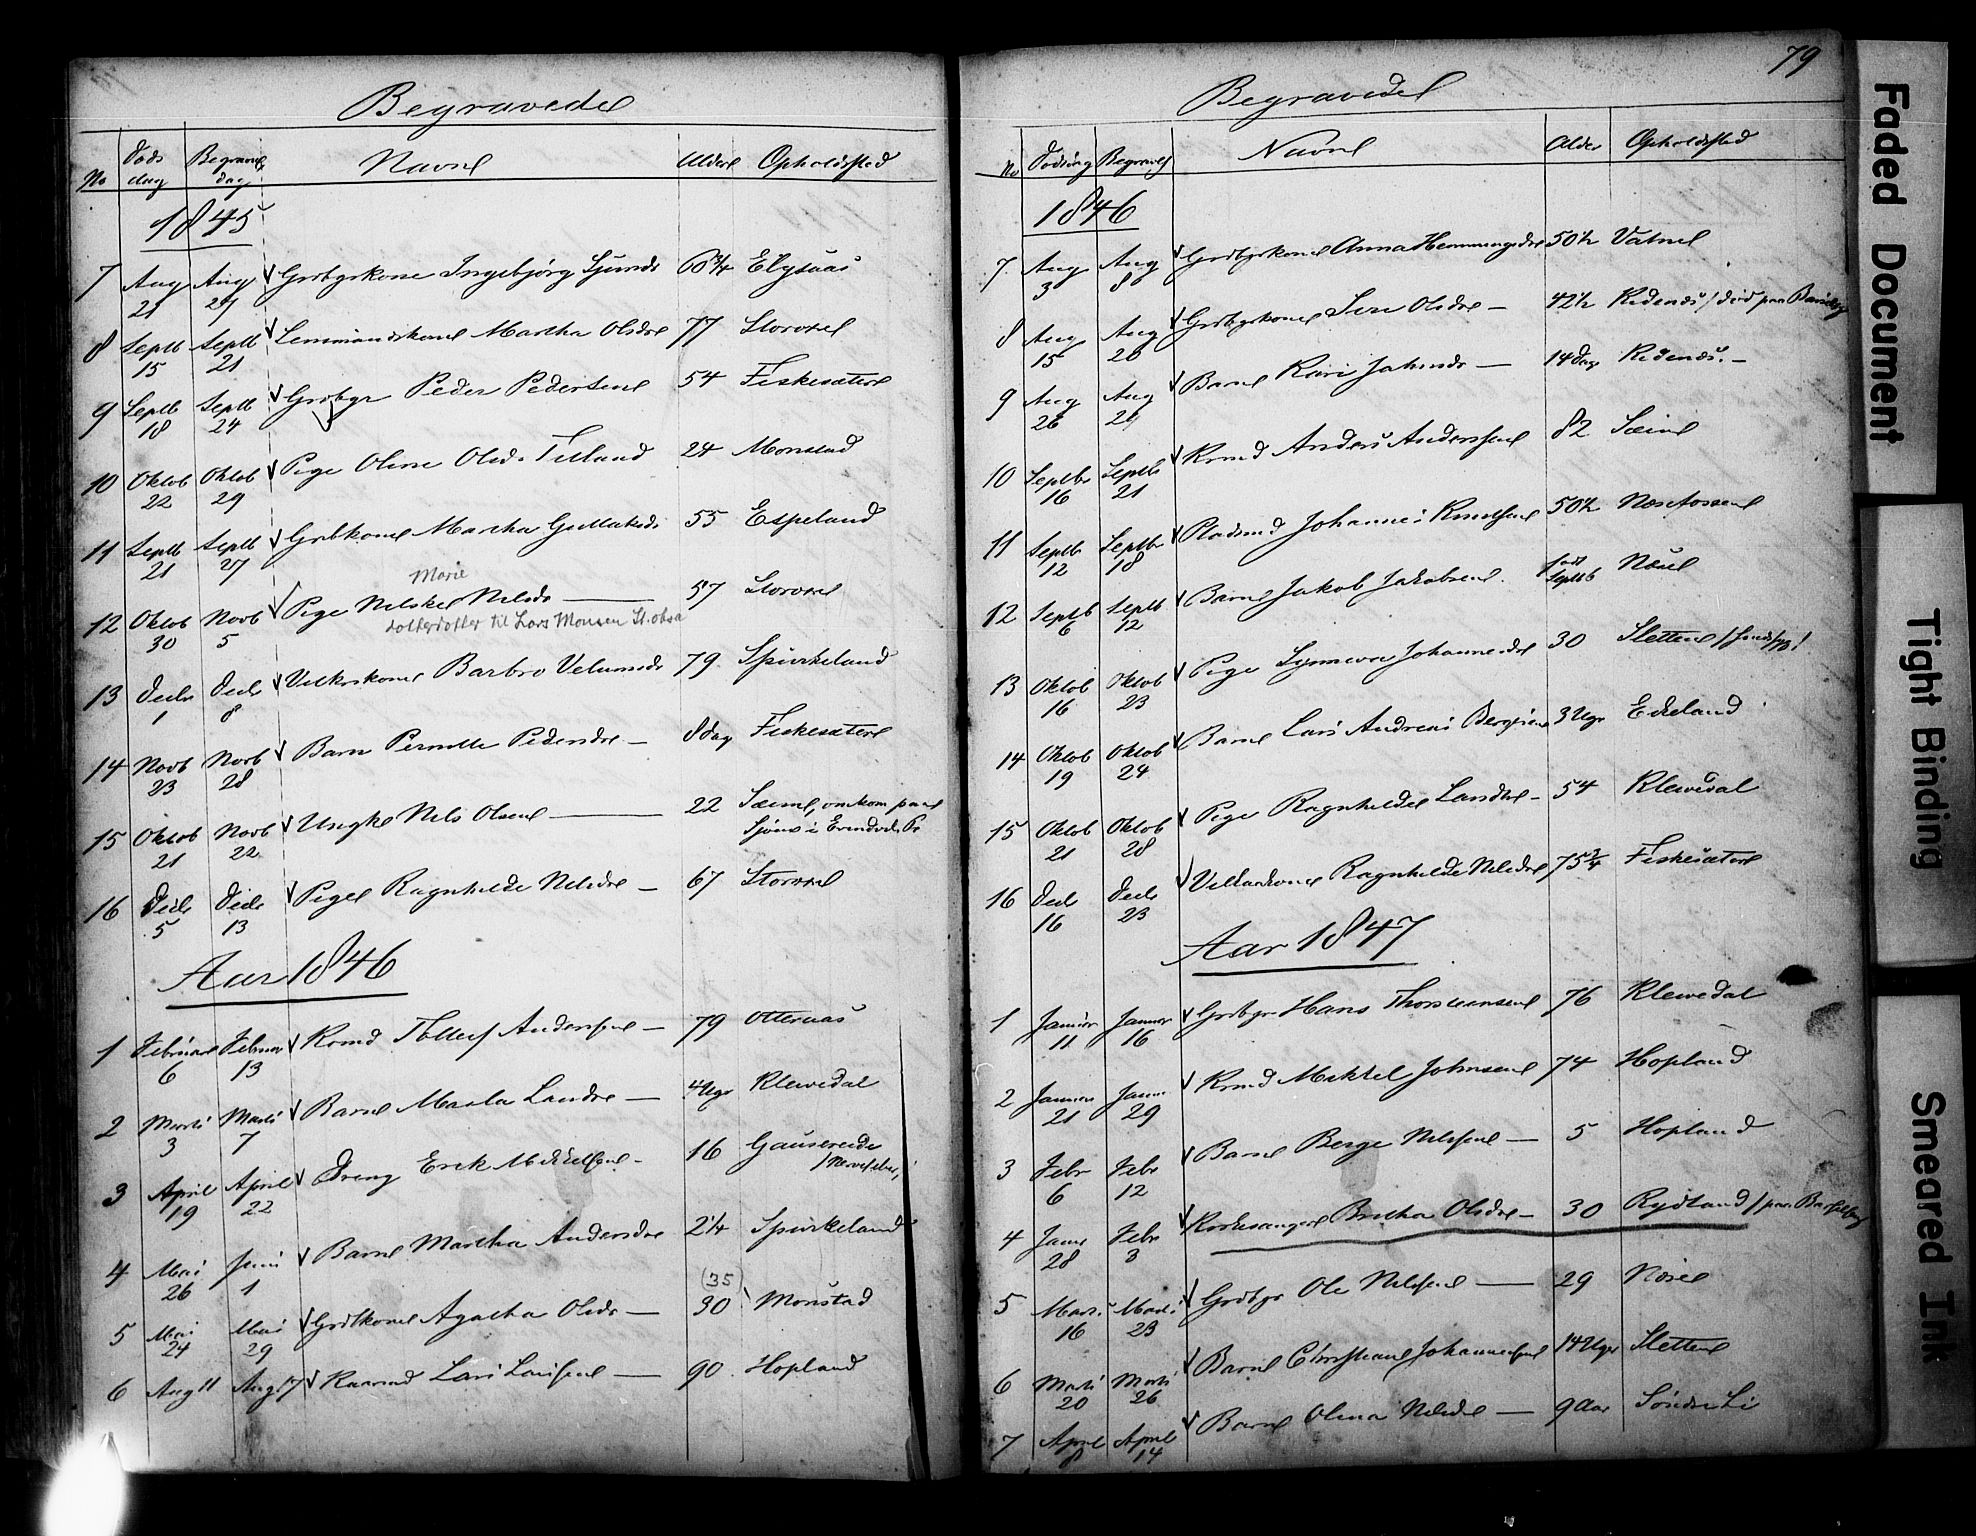 Begravede
No Døds dag Begravels dag Navne Aldere Opholdssted
1845
7 Aug 21 Aug 29 Grdbrkone Ingebjørg Sjursdr 60¾ Elysaas
8 Septb 15 Septb 21 Martha Olsdre 77 Storoxel
9 Septb 18 Septb 24 Grdbgr Peder Pedersene 54 Fiskesætere
10 Oktob 22 Oktob 29 Pige Oline Olsdr Tilland 24 Monstad
11 Septb 21 Septb 27 Grdbkone Martha Gullaksdr 55 Espeland
Marie
12 Oktob 30 Novb 5 Pige Nilske Nilsdr 57 Storoxel
dotterdotter til Lars Monsen St.oksa
13 Decbr 1 Decb 8 Barbro 79 Spurkeland
14 Novb 23 Novb 28 Barn Pernille Pedersdre 8 dag Fiskesætere
15 Oktob 21 Novb 22 Ungke Nils Olsene 22 Sæime, omkom paa
Sjøen i Evindvigs Pr
16 Decb 5 Decb 13 Pige Ragnhilde Nilsdre 67 Storoxel
Aar 1846
1 Februar 6 Februar 13 Kaarmd Tollef Andersene 79 Otteraas
2 Marts 3 Marts 7 Barne Marta Larsdre 4 Uger Klevedal
3 April 19 April 22 Dreng Erik Mikkelsene 16 Gausereide
4 Mai 26 Juni 1 Barne Martha Andersdre 2¼ Spurkeland
(35)
5 Mai 24 Mai 29 Grdbkone Agatha Olsdr 30 Monstad
6 Aug 11 Aug 17 Kaarmd Lars Larsene 90 Hopland
79
Begravede
No Dødsdag Begravels Navne Alder Opholdssted
1846
7 Aug 3 Aug 8 Grdbrkone Anna Hemmingsdre 50½ Vatne
8 Aug 15 Aug 20 Grdbrkone Olsdre 42½ Risenæs / død paa Barselseng
9 Aug 26 Aug 29 Barne Kari Jakobsdr 14 dage Risenæs
10 Septbr 16 Septb 21 Krmd Anders Andersene 82 Sæime
11 Septb 12 Septbr 18 Pladsmd Johannes Knudsene 50½ Næsefossene
12 Septb 6 Septb 12 Barne Jakob Jakobsene født Septb Næse
13 Oktob 16 Oktob 23 Pige Synneve Johannesdre 30 Slettene
14 Oktob 19 Oktob 24 Barne Lars Andreas 3 Uger Eikeland
15 Oktob 21 Oktob 28 Pige Ragnhilde Larsdre 54 Klevedal
16 Decb 16 Decb 23 Ragnhilde Nilsdre 75¾ Fiskesætere
Aar 1847
1 Januar 11 Januar 16 Grdbgr Hans Thorsteensene 76 Klevedal
2 Januar 21 Januar 29 Krmd Mikkel Johnsene 74 Hopland
3 Febr 6 Febr 12 Barne Berge Nilssene 5 Hopland
4 Janr 28 Febr 3 Kirkesangere Britha Olsdre 30 Rydland / paa Barselseng
5 Marts 16 Marts 23 Grdbgr Ole Nilssene 29 Næse
6 Marts 20 Marts 26 Barne Christiane Johannesene 14 Uger Slettene
7 April 8 April 14 Barne Olina Nilsdre 9 Aar Søndre Li
Faded Document
Tight Binding
Smeared Ink